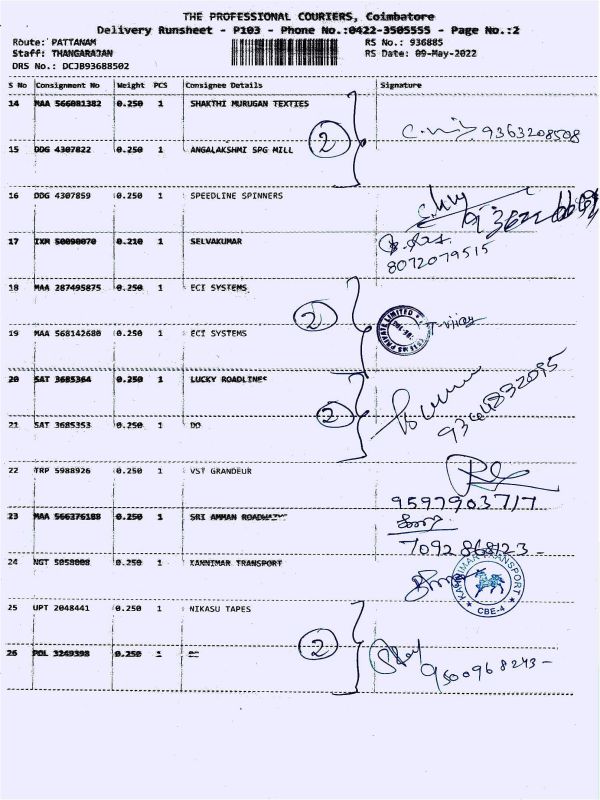 THE PROFESSIONAL COURIERS, Coimbatore
Delivery Runsheet - P103 - Phone No.:0422-3505555 - Page No.:2
Route: PATTANAM RS No.: 936885
Staff: THANGARAJAN RS Date: 09-May-2022
DRS No.: DCJB93688502
S No Consignment No Weight PCS Consignee Details Signature
14 MAA 566081382 0.250 1 SHAKTHI MURUGAN TEXTIES
2 9363208508
15 DDG 4307822 0.250 1 ANGALAKSHMI SPG MILL
16 DDG 4307859 0.250 1 SPEEDLINE SPINNERS
17 IXM 50090070 0.210 1 SELVAKUMAR
8072079515
18 MAA 287495875 0.250 1 ECI SYSTEMS
2 PRIVATE LIMITED
19 MAA 568142680 0.250 1 ECI SYSTEMS
20 SAT 3685364 0.250 1 LUCKY ROADLINES
2
21 SAT 3685353 0.250 1 DO
22 TRP 5988926 0.250 1 VST GRANDEUR
9597903717
23 MAA 566376188 0.250 1 SRI AMMAN
7092868123
24 NGT 5058008 0.250 1 KANNIMAR TRANSPORT
KANNIMAR TRANSPORT CBE-4
25 UPT 2048441 0.250 1 NIKASU TAPES
2 9500968243
26 POL 3249398 0.250 1